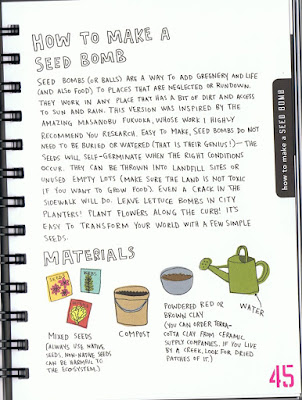 HOW TO MAKE A
SEED BOMB
SEED BOMBS (OR BALLS) ARE A WAY TO ADD GREENERY AND LIFE
(AND ALSO FOOD) TO PLACES THAT ARE NEGLECTED OR RUNDOWN.
THEY WORK IN ANY PLACE THAT HAS A BIT OF DIRT AND ACCESS
TO SUN AND RAIN. THIS VERSION WAS INSPIRED BY THE
AMAZING MASANOBU FUKUOKA, WHOSE WORK I HIGHLY
RECOMMEND YOU RESEARCH. EASY TO MAKE, SEED BOMBS DO NOT
NEED TO BE BURIED OR WATERED (THAT IS THEIR GENIUS!)— THE
SEEDS WILL SELF-GERMINATE WHEN THE RIGHT CONDITIONS
OCCUR. THEY CAN BE THROWN INTO LANDFILL SITES OR
UNUSED EMPTY LOTS (MAKE SURE THE LAND IS NOT TOXIC
IF YOU WANT TO GROW FOOD). EVEN A CRACK IN THE
SIDEWALK WILL DO. LEAVE LETTUCE BOMBS IN CITY
PLANTERS! PLANT FLOWERS ALONG THE CURB! IT'S
EASY TO TRANSFORM YOUR WORLD WITH A FEW SIMPLE
SEEDS.
how to make a SEED BOMB
MATERIALS
SEEDS
MIXED SEEDS
(ALWAYS USE NATIVE
SEEDS, NON-NATIVE SEEDS
CAN BE HARMFUL TO
THE ECOSYSTEM.)
COMPOST
POWDERED RED OR
BROWN CLAY
(YOU CAN ORDER TERRA-
COTTA CLAY FROM CERAMIC
SUPPLY COMPANIES. IF YOU LIVE
BY A CREEK, LOOK FOR DRIED
PATCHES OF IT.)
WATER
45